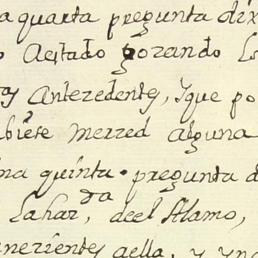 a quarta pregunta dix
o Aestado gozando Es
tas Antezedente, Yque po
ubiese merzed alguna
ma quinta pregunta d
Lahar, deel Alamo,
aella, y